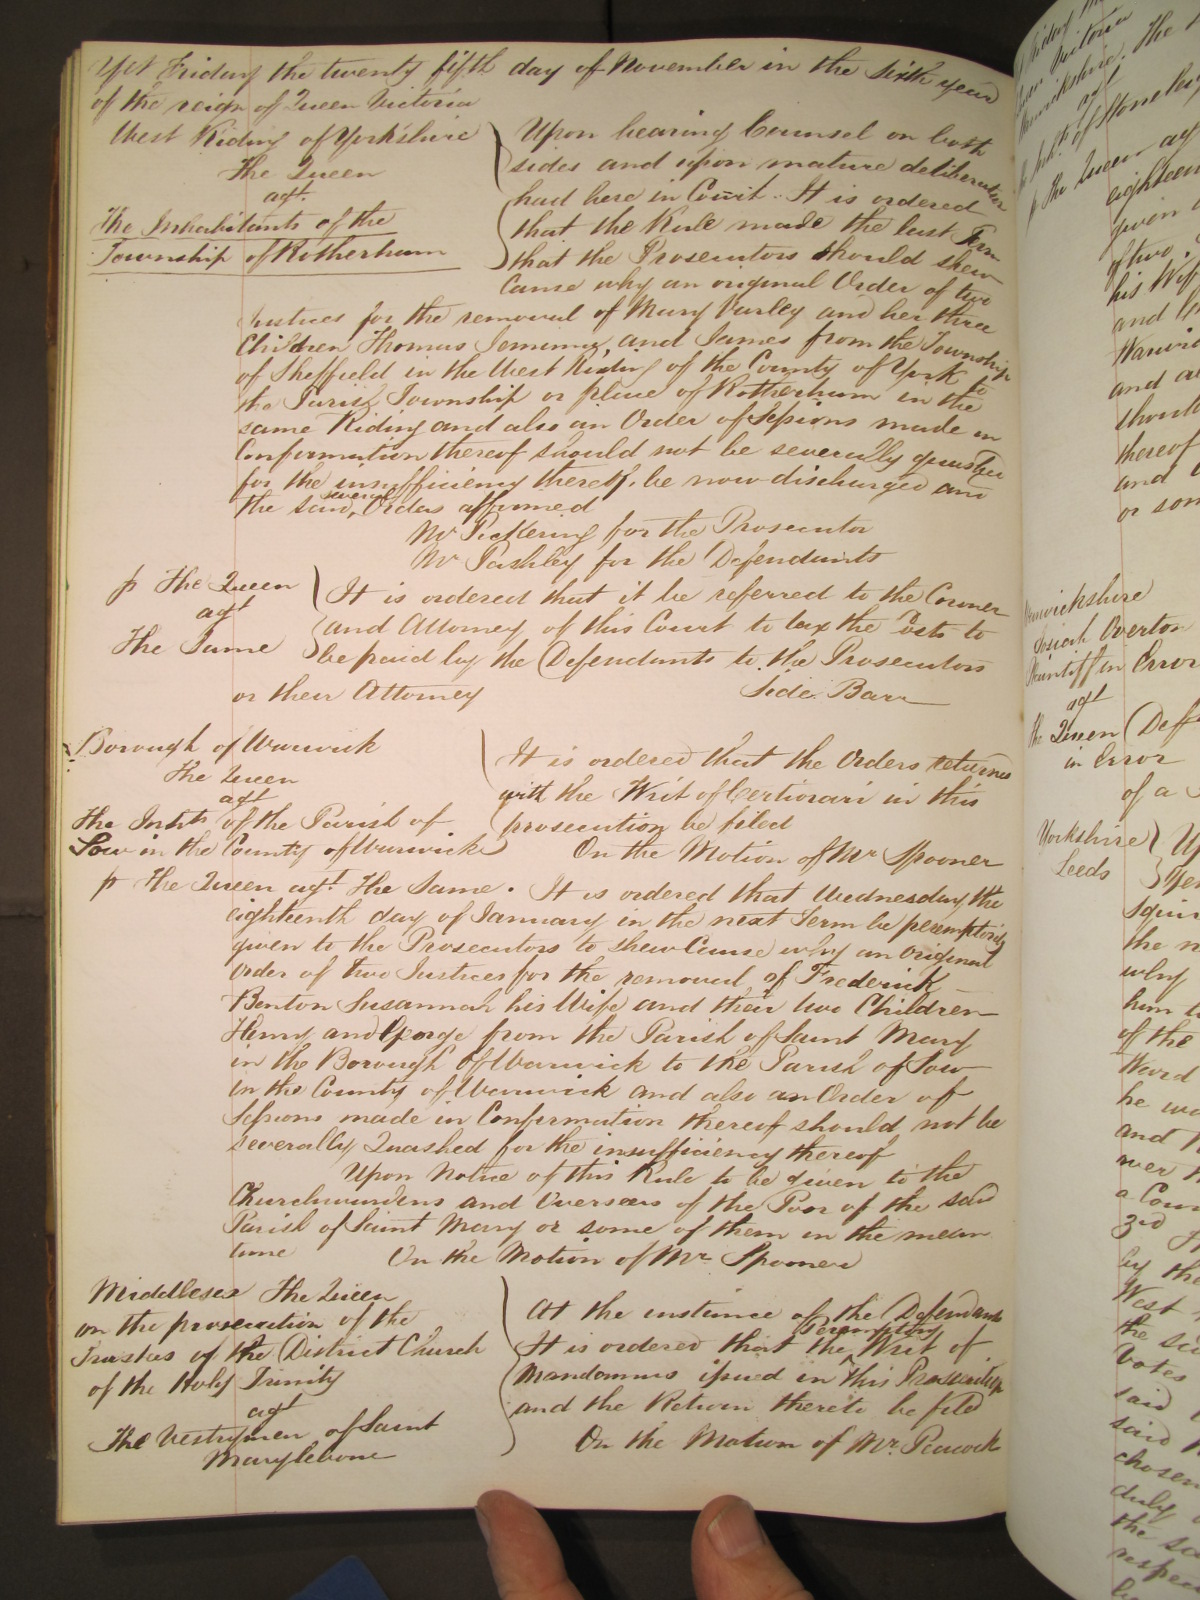 Yet Friday the twenty fifth day of November in the sixth year
of the reign of Queen Victoria
West Riding of Yorkshire
The Queen
agt.
The Inhabitants of the
Township of Rotherham
Upon hearing Counsel on both
sides and upon mature deliberation
had here in Court. It is ordered
that the Rule made the last Term
that the Prosecutors should shew
Cause why an original Order of two
Justices for the removal of Mary Varley and her three
Children Thomas Jemima, and James from the Township
of Sheffield in the West Riding of the County of York to
the Parish Township or place of Rotherham in the
same Riding and also an Order of Sessions made in
Confirmation thereof should not be severally quashed
for the insufficiency thereof, be now discharged and
the said several Orders affirmed
Mr Pickering for the Prosecutor
Mr Pashley for the Defendants
p The Queen
agt
The Same
It is ordered that it be referred to the Coroner
and Attorney of this Court to tax the Costs to
be paid by the Defendants to the Prosecutors
or their Attorney Side Barr
Borough of Warwick
The Queen
agt
The Inhts of the Parish of
Sow in the County of Warwick
It is ordered that the Orders returned
with the Writ of Certiorari in this
prosecution be filed
On the Motion of Mr Spooner
p The Queen agt The Same. It is ordered that Wednesday the
eighteenth day of January in the next Term be peremptorily
given to the Prosecutors to shew Cause why an original
Order of two Justices for the removal of Frederick
Benton Susannah his Wife and their two Children
Henry and George from the Parish of Saint Mary
in the Borough of Warwick to the Parish of Sow
in the County of Warwick and also an Order of
Sessions made in Confirmation thereof should not be
severally Quashed for the insufficiency thereof
Upon Notice of this Rule to be given to the
Churchwardens and Overseers of the Poor of the said
Parish of Saint Mary or some of them in the mean
time On the Motion of Mr Spooner
Middlesex The Queen
on the prosecution of the
Trustees of the District Church
of the Holy Trinity
agt
The Vestrymen of Saint
Marylebone
At the instance of the Defendants
It is ordered that the Peremptory Writ of
Mandamus issued in this Prosecution
and the Return thereto be filed
On the Motion of Mr. Peacock
of Stoneleigh
p The Queen ag
eighteen
given
of two
his Wif
and
Warwi
and al
should
thereof
and
or som
Warwickshire
Josiah Overton
Plaintiff in Error
agt
The Queen Defe
in Error
of a
Yorkshire
Leeds
Squir
the
why
him to
of the
Ward
he wa
and
over
a Coun
3rd
by the
West
the
Votes
said
said
chosen
duly
the
respec